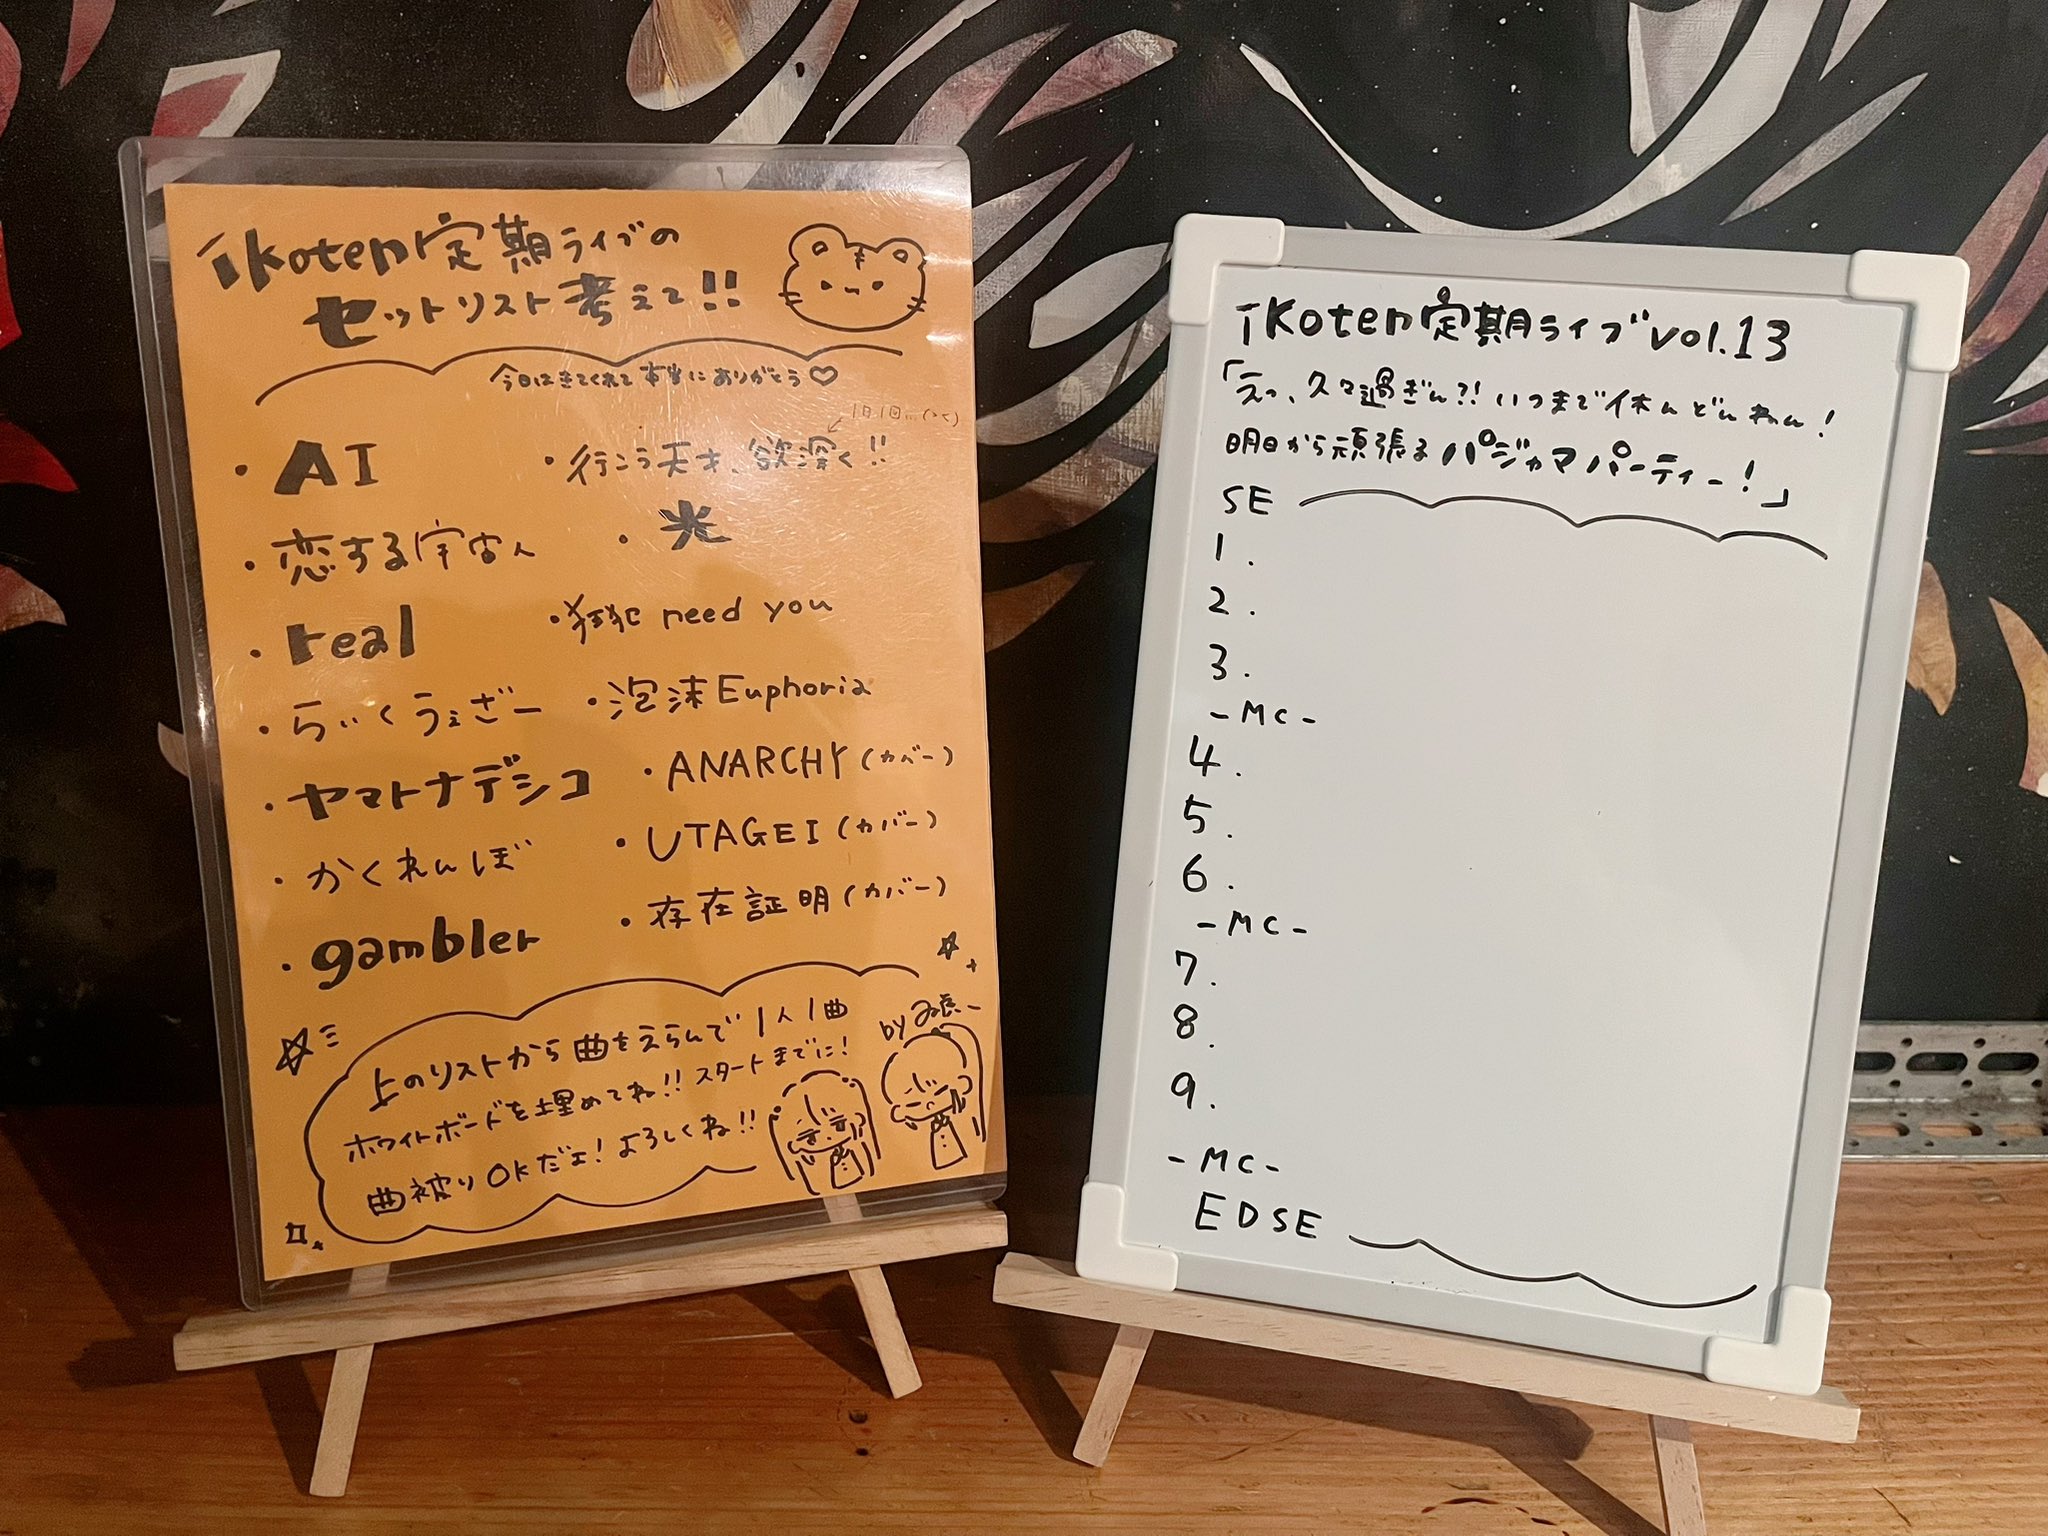 ikoten定期ライブの
セットリスト考えて!!
今日はきてくれて本当にありがとう♡
・AI
・恋する宇宙人
・real
・らいくうぇざー
・ヤマトナデシコ
・かくれんぼ
・gambler
1日1回…(><)
・行こう天才、欲深く!!
・光
・狂犯 need you
・泡沫Euphoria
・ANARCHY(カバー)
・UTAGEI(カバー)
・存在証明(カバー)
上のリストから曲をえらんで1人1曲
ホワイトボードを埋めてね!!スタートまでに!
曲被りOKだェ!よろしくね!!
by
ikoten定期ライブvol.13
「えっ、久々過ぎん?!いつまで休んどんねん!
明日から頑張るパジャマパーティー!」
SE
1.
2.
3.
-MC-
4.
5.
6.
-MC-
7.
8.
9.
-MC-
EDSE